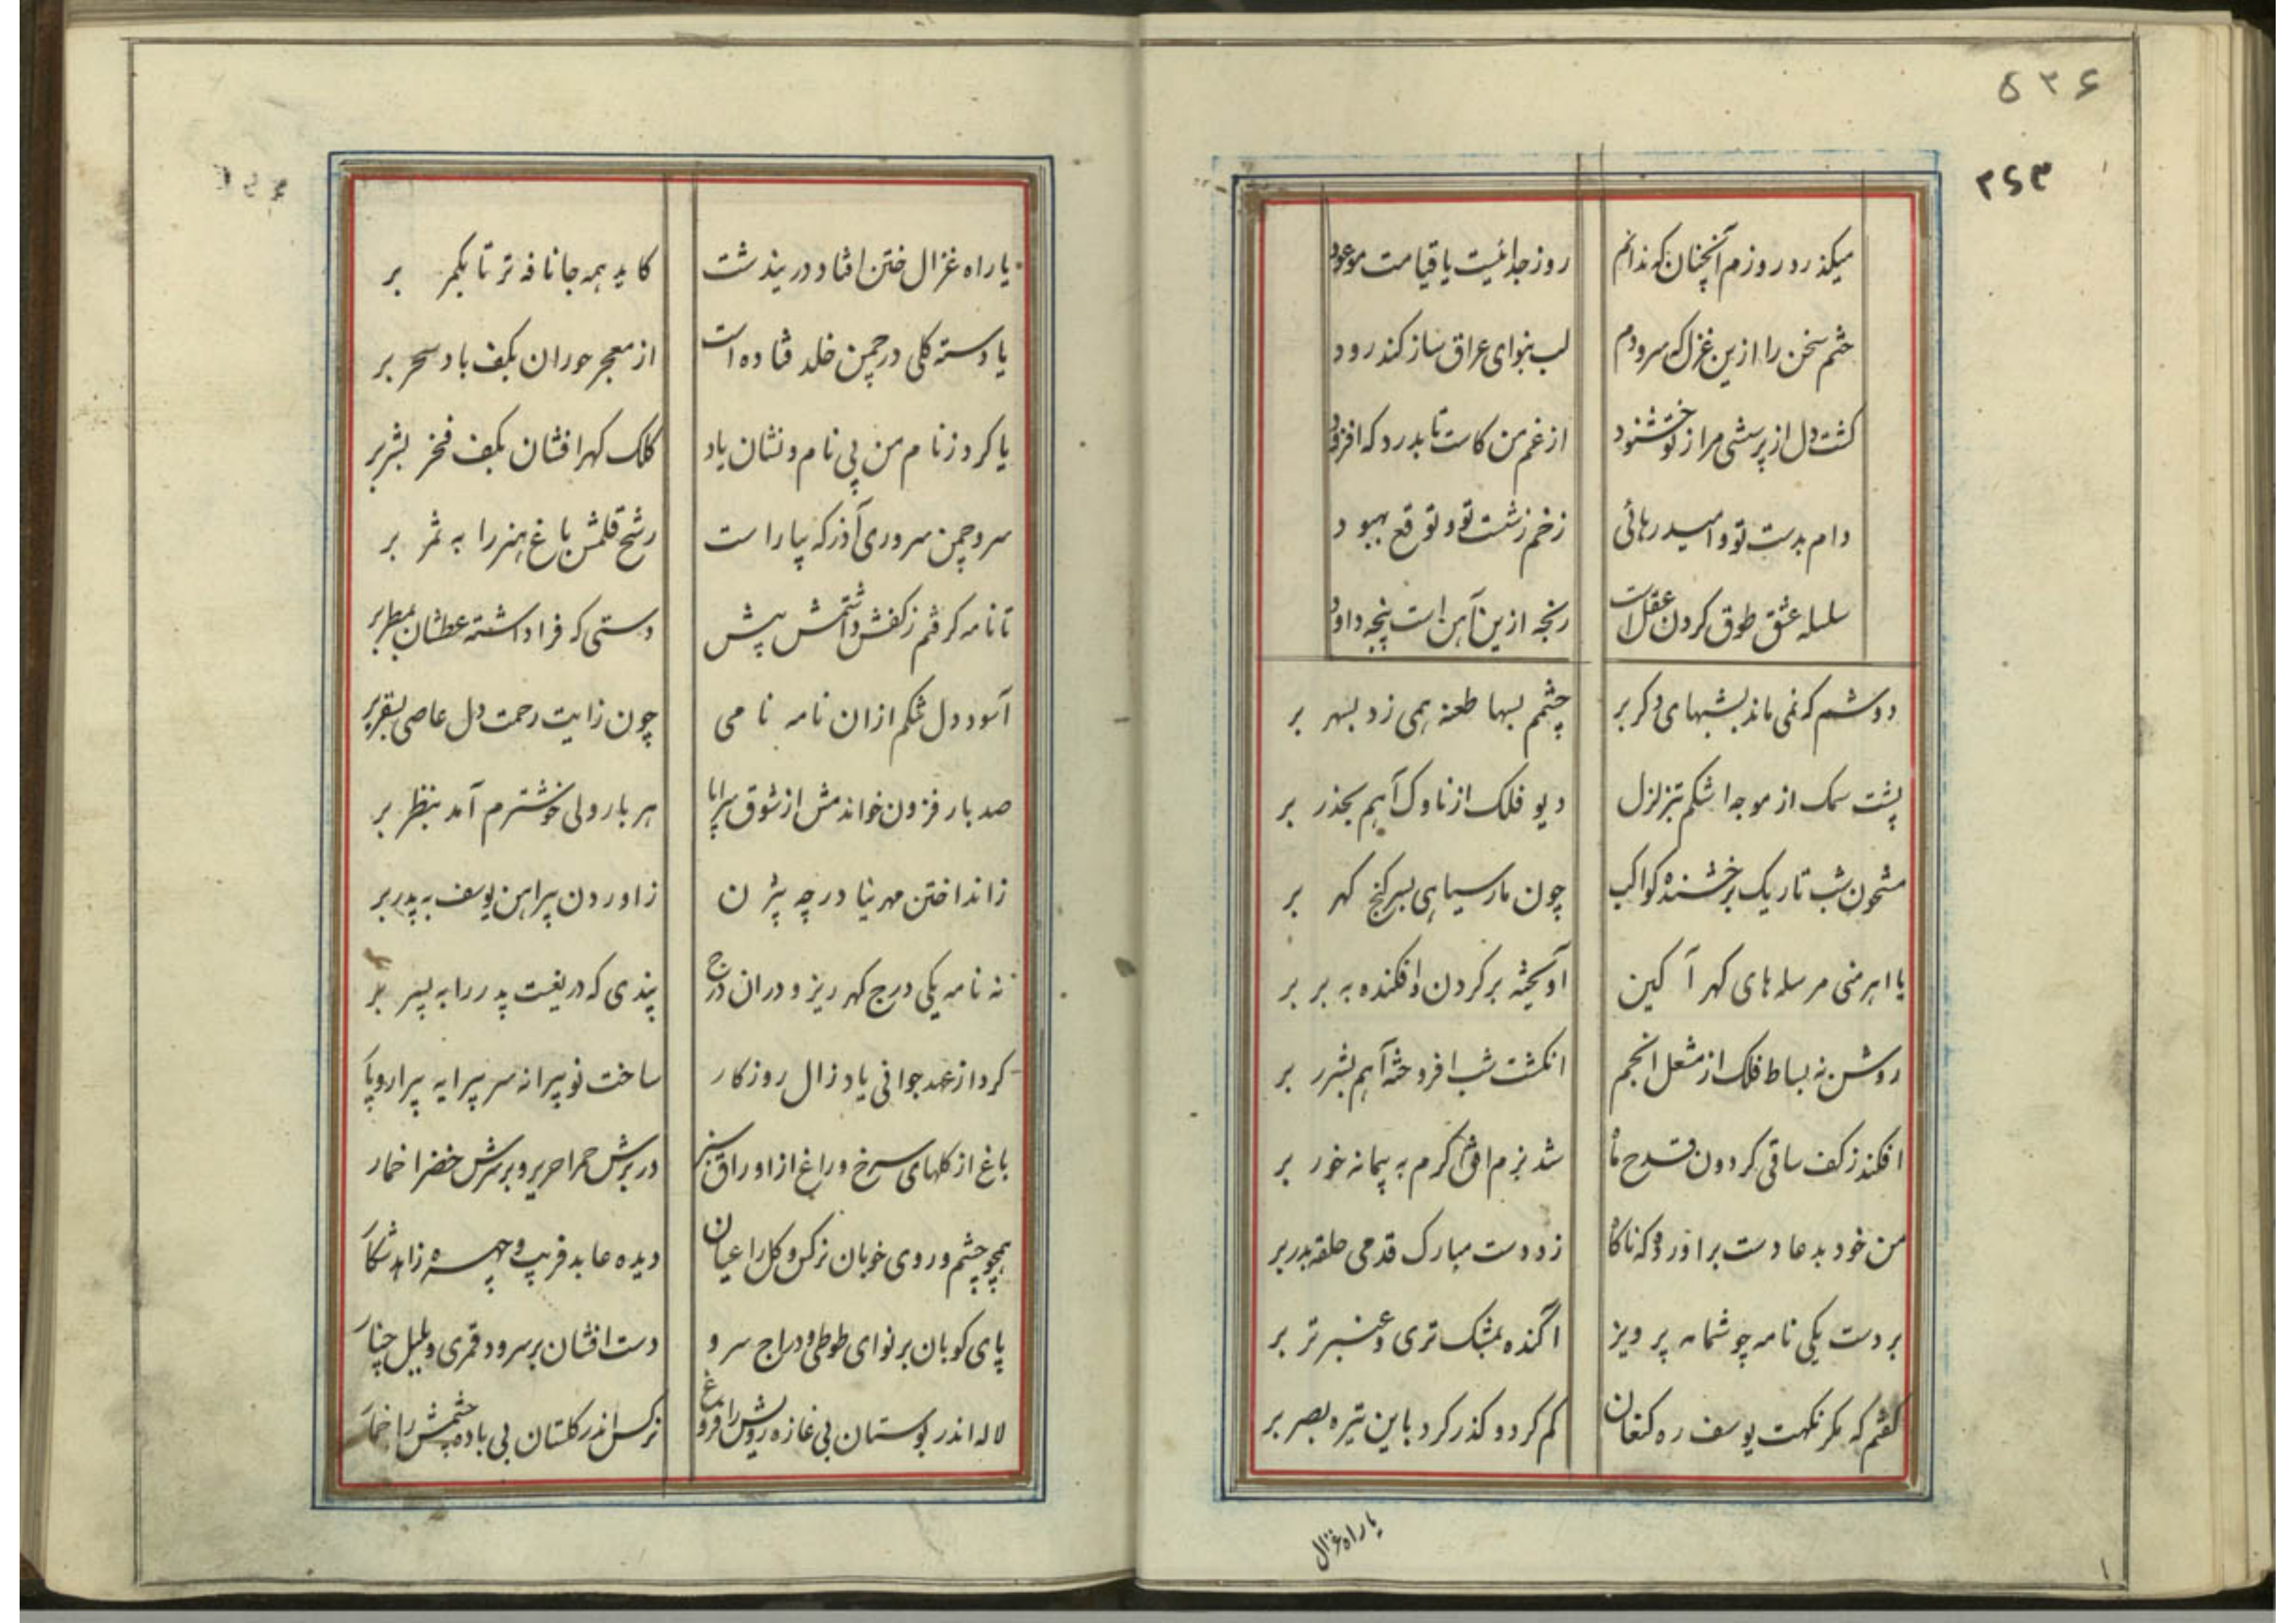 ۵۳۶
۲۶۳
میکذرد روزم آنچنان که ندانم روز جدائیست یا قیامت موعود
ختم سخن را ازین غزل که سرودم لب بنوای عراق ساز کند رود
کشت دل از پرسشی مرا ز تو خشنود از غم من کاست تا بدرد که افزود
دام بدست تو و امید رهائی زخم ز شست تو و توقع بهبود
سلسله عشق طوق کردن عقل است رنجه ازین آهن است پنجه داود
دوشم که نمی ماند بشبهای دکر بر چشمم بسها طعنه همی زد بسهر بر
پشت سمک از موجه اشکم بتزلزل دیو فلک از ناوک آهم بحذر بر
مشحون شب تاریک برخشنده کواکب چون مار سیاهی بسر کنج کهر بر
یا اهرمنی مرسله های کهر آکین آویخته بر کردن و افکنده به بر بر
روشن نه بساط فلک از مشعل انجم انکشت شب افروخته آهم بشرر بر
افکند ز کف ساقی کردون قدح ماه شد بزم افق کرم به پیمانه خور بر
من خود بدعا دست براورده که ناکاه زد دست مبارک قدمی حلقه بدر بر
بر دست یکی نامه چو شمامه پرویز آکنده بمشک تری و عنبر تر بر
کفتم که مکر نکهت یوسف ره کنعان کم کرد و کذر کرد باین تیره بصر بر
یا راه غزال
یا راه غزال ختن افتاد درین دشت کاید همه جا نافه تر تا بکمر بر
یا دسته کلی در چمن خلد فتاده است از معجر حوران بکف باد سحر بر
یا کرد ز نام من بی نام و نشان یاد کلک کهر افشان بکف فخر بشر بر
سرو چمن سروری آذر که بیاراست رشح قلمش باغ هنر را به ثمر بر
تا نامه کرفتم ز کفش داشتمش پیش دستی که فرا داشته عطشان بمطر بر
آسود دل تنکم ازان نامه نامی چون زایت رحمت دل عاصی بسقر بر
صد بار فزون خواندمش از شوق سراپا هر بار ولی خوشترم آمد بنظر بر
زانداختن مهر نیا در چه بیژن زاوردن پیراهن یوسف به پدر بر
نه نامه یکی درج کهر ریز و دران درج پندی که دریغست پدر را به پسر بر
کرد از عهد جوانی یاد زال روزکار ساخت نو پیرانه سر پیرایه پیرار و پار
باغ از کلهای سرخ و راغ از اوراق سبز در برش حمرا حریر و بر سرش خضرا خمار
همچو چشم و روی خوبان نرکس و کل را عیان دیده عابد فریب و چهره زاهد شکار
پای کوبان بر نوای طوطی و دراج سرو دست افشان بر سرود قمری و بلبل چنار
لاله اندر بوستان بی غازه رویش را فروغ نرکس اندر کلستان بی باده چشمش را خمار